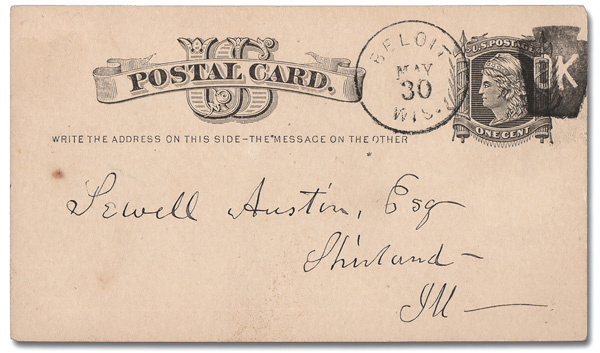 US
POSTAL CARD.
WRITE THE ADDRESS ON THIS SIDE-THE MESSAGE ON THE OTHER
BELOIT
MAY
30
WIS.
U.S. POSTAGE
ONE CENT
OK
Sewell Austin, Esq
Shirland-
Ill-